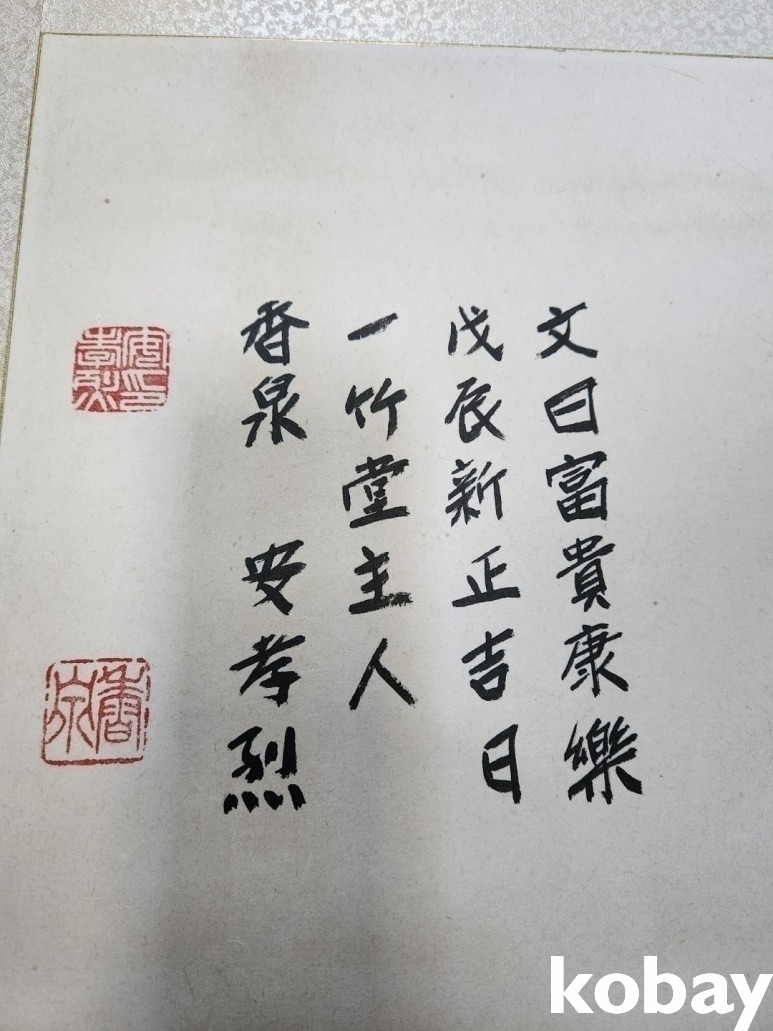 文曰富貴康樂
戊辰新正吉日
一竹堂主人
香泉 安孝烈
安孝烈印
香泉
kobay